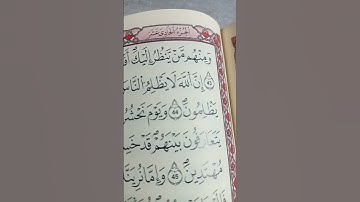 الجزء الحادي عشر
ومنهم من ينظر إليك
٤٣ إن الله لا يظلم الناس
يظلمون ٤٤ ويوم نحشر
يتعارفون بينهم قد
مهتدين ٤٥ وإما نرينك